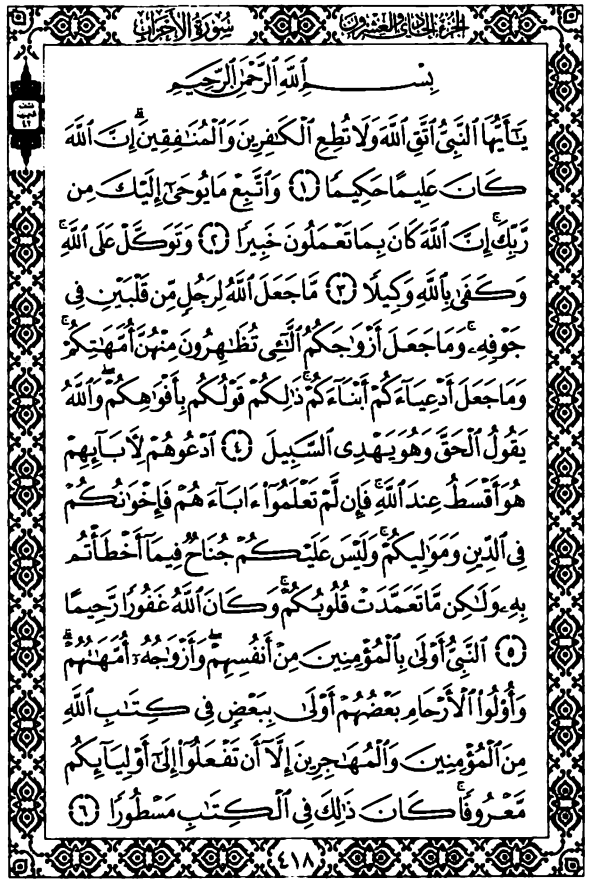 الجزء الحادي والعشرون
سورة الأحزاب
بِسْمِ ٱللَّهِ ٱلرَّحْمَٰنِ ٱلرَّحِيمِ
يَٰٓأَيُّهَا ٱلنَّبِيُّ ٱتَّقِ ٱللَّهَ وَلَا تُطِعِ ٱلْكَٰفِرِينَ وَٱلْمُنَٰفِقِينَۗ إِنَّ ٱللَّهَ
كَانَ عَلِيمًا حَكِيمًا ١ وَٱتَّبِعْ مَا يُوحَىٰٓ إِلَيْكَ مِن
رَّبِّكَۚ إِنَّ ٱللَّهَ كَانَ بِمَا تَعْمَلُونَ خَبِيرًا ٢ وَتَوَكَّلْ عَلَى ٱللَّهِۚ
وَكَفَىٰ بِٱللَّهِ وَكِيلًا ٣ مَّا جَعَلَ ٱللَّهُ لِرَجُلٍ مِّن قَلْبَيْنِ فِى
جَوْفِهِۦۚ وَمَا جَعَلَ أَزْوَٰجَكُمُ ٱلَّٰٓـِٔى تُظَٰهِرُونَ مِنْهُنَّ أُمَّهَٰتِكُمْۚ
وَمَا جَعَلَ أَدْعِيَآءَكُمْ أَبْنَآءَكُمْۚ ذَٰلِكُمْ قَوْلُكُم بِأَفْوَٰهِكُمْۖ وَٱللَّهُ
يَقُولُ ٱلْحَقَّ وَهُوَ يَهْدِى ٱلسَّبِيلَ ٤ ٱدْعُوهُمْ لِأَبَآئِهِمْ
هُوَ أَقْسَطُ عِندَ ٱللَّهِۚ فَإِن لَّمْ تَعْلَمُوٓا۟ ءَابَآءَهُمْ فَإِخْوَٰنُكُمْ
فِى ٱلدِّينِ وَمَوَٰلِيكُمْۚ وَلَيْسَ عَلَيْكُمْ جُنَاحٌ فِيمَآ أَخْطَأْتُم
بِهِۦ وَلَٰكِن مَّا تَعَمَّدَتْ قُلُوبُكُمْۚ وَكَانَ ٱللَّهُ غَفُورًا رَّحِيمًا
٥ ٱلنَّبِىُّ أَوْلَىٰ بِٱلْمُؤْمِنِينَ مِنْ أَنفُسِهِمْۖ وَأَزْوَٰجُهُۥٓ أُمَّهَٰتُهُمْۗ
وَأُو۟لُوا۟ ٱلْأَرْحَامِ بَعْضُهُمْ أَوْلَىٰ بِبَعْضٍ فِى كِتَٰبِ ٱللَّهِ
مِنَ ٱلْمُؤْمِنِينَ وَٱلْمُهَٰجِرِينَ إِلَّآ أَن تَفْعَلُوٓا۟ إِلَىٰٓ أَوْلِيَآئِكُم
مَّعْرُوفًاۚ كَانَ ذَٰلِكَ فِى ٱلْكِتَٰبِ مَسْطُورًا ٦
٤١٨